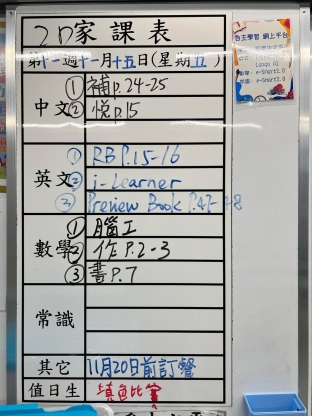 2D家課表
第十一週十一月十五日(星期五)
中文
① 補p.24-25
② 悦p.15
英文
① RB P.15-16
② i-Learner
③ Preview Book P.47-48
數學
① 腦工
② 作P.2-3
③ 書P.7
常識
其它
11月20日前訂餐
值日生
填色比賽
自主學習 網上平台